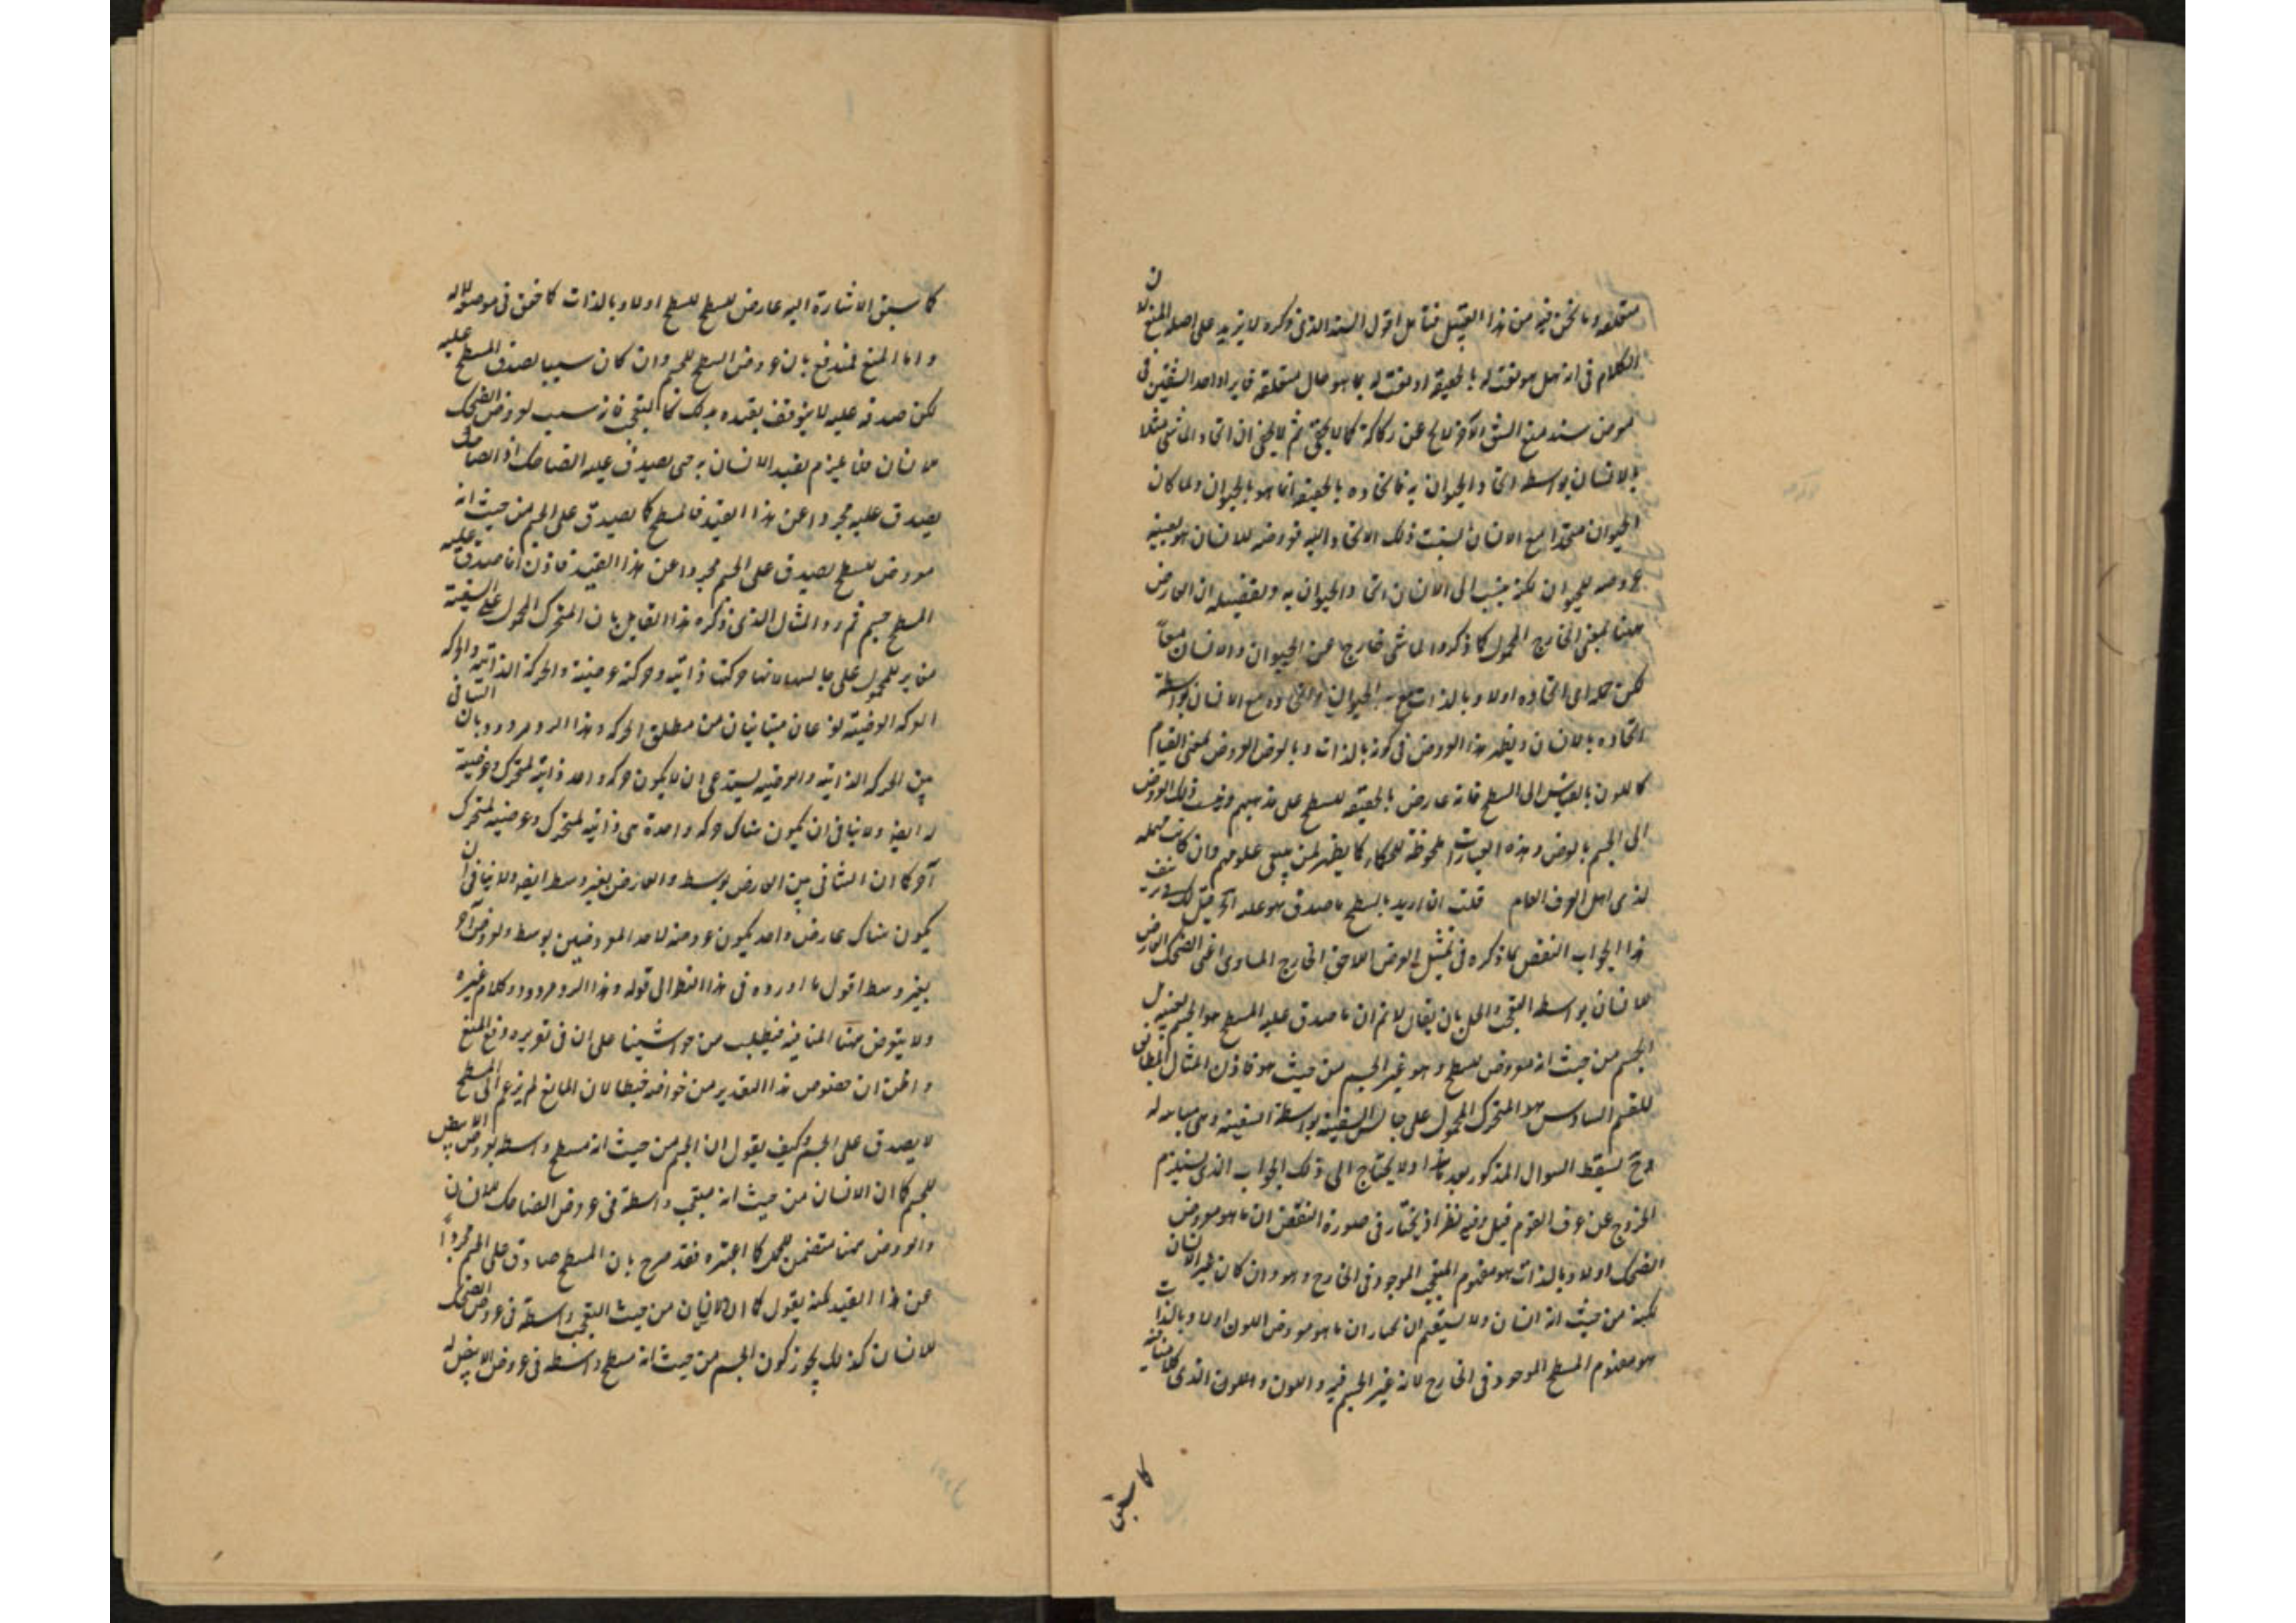 متعلقه وما نحن فيه من هذا القبيل فتأمل اقول السند الذى ذكره لا يزيد على اصله المنع لان
الكلام فى انه هل هو نعت له بالحقيقة او نعت له بما هو حال متعلقه فايراد احد الشقين فى
معرض سند منع الشق الآخر لا يخ عن ركاكة كما لا يخفى ثم لا يخفى ان اتحاد الماشى مثلا
بالانسان بواسطة اتحاد الحيوان به فاتحاده بالحقيقة انما هو بالحيوان ولما كان
الحيوان متحدا مع الانسان نسبت ذلك الاتحاد اليه فعروضه للانسان هو بعينه
عروضه للحيوان لكنه ينسب الى الانسان اتحاد الحيوان به وتفصيله ان العارض
ههنا بمعنى الخارج المحمول كما ذكروا الماشى خارج عن الحيوان والانسان معاً
لكن حمله اى اتحاده اولا وبالذات مع الحيوان واتحاده مع الانسان بواسطة
اتحاده بالانسان ونظير هذا العروض فى كونه بالذات وبالعرض العروض بمعنى القيام
كاللون بالقياس الى السطح فانه عارض بالحقيقة للسطح على مذهبهم وينسب ذلك العروض
الى الجسم بالعرض وهذه العبارات ملحوظة للحكماء كما يظهر لمن يتتبع علومهم وان كانت مهملة
لدى اهل العرف العام قلت ان اريد بالسطح ما صدق هو عليه الخ قيل لك
هذا الجواب النقض بما ذكره فى تمثيل العرض اللاحق الخارج المساوى اعنى الضحك العارض
للانسان بواسطة التعجب والحل بان يقال لا نم ان ما صدق عليه المسطح هو الجسم بعينه بل
الجسم من حيث انه معروض للسطح وهو غير الجسم من حيث هو فاذن المثال المطابق
للقسم السادس هو المتحرك المحمول على جالس السفينة بواسطة السفينة وهى مباينة له
وح يسقط السوال المذكور بعد هذا ولا يحتاج الى ذلك الجواب الذى يستلزم
الخروج عن عرف القوم قيل وفيه نظر اذ يختار فى صورة النقض ان ما هو معروض
الضحك اولا وبالذات هو مفهوم المتعجب الموجود فى الخارج وهو وان كان غير الانسان
لكنه من حيث انه انسان ولا يستقيم ان يختار ان ما هو معروض اللون اولا وبالذات
هو مفهوم المسطح الموجود فى الخارج لانه غير الجسم فيه واللون واللون الذى كلامنا فيه
كما سبق
كما سبق الاشارة اليه عارض للسطح للسطح اولا وبالذات كما حقق فى موضعه لا له
واما المنع فمندفع بان عروض السطح للجسم وان كان سببا لصدق المسطح عليه
لكن صدقه عليه لا يتوقف بقيده بذلك كما التعجب فانه سبب لعروض الضحك
للانسان فما يلزم تقييد الانسان به حتى يصدق عليه الضاحك اذ الضاحك
يصدق عليه مجردا عن هذا القيد فالمسطح كما يصدق على الجسم من حيث انه
معروض للسطح يصدق على الجسم مجردا عن هذا القيد فاذن انما صدق عليه
المسطح جسم ثم رد المثال الذى ذكره هذا القايل بان المتحرك المحمول على السفينة
مغاير للمحمول على جالسها لانها حركتها ذاتية وحركته عرضية والحركة الذاتية والحركة
العرضية نوعان متباينان من مطلق الحركة وهذا الرد مردود بان التنافى
بين الحركة الذاتية والعرضية يستدعى ان لا يكون حركة واحدة ذاتية لمتحرك وعرضية
له ايضا ولا ينافى ان يكون هناك حركة واحدة هى ذاتية لمتحرك وعرضية لمتحرك
آخر كما ان التنافى بين العارض بوسط والعارض بغير وسط ايضا ولا ينافى ان
يكون هناك عارض واحد يكون عروضه لاحد المعروضين بوسط ولعروض آخر
بغير وسط اقول ما اورده فى هذا النظر الى قوله وهذا الرد مردود كلام غيره
ولا يتعرض ههنا لما فيه فيطلب من حواشينا على ان فى تقريره دفع المنع
واظن ان خصوص هذا التقدير من خواصه خبطا لان المانع لم يزعم ان المسطح
لا يصدق على الجسم وكيف يقول ان الجسم من حيث انه مسطح واسطة لعروض الابيض
للجسم كما ان الانسان من حيث انه متعجب واسطة فى عروض الضاحك للانسان
والعروض ههنا متضمن للحمل كما اعتبره فقد صرح بان المسطح صادق على الجسم مجرداً
عن هذا القيد لكنه يقول كما ان الانسان من حيث التعجب واسطة فى عروض الضحك
للانسان كذلك يجوز كون الجسم من حيث انه مسطح واسطة فى عروض الابيض له